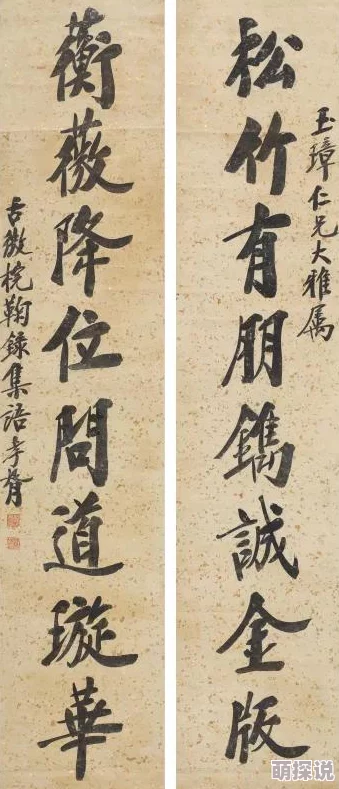 玉璋仁兄大雅属
松竹有朋鐫誠金版
蘅薇降位問道璇華
古微梡鞠錄集語孝臧
萌探说